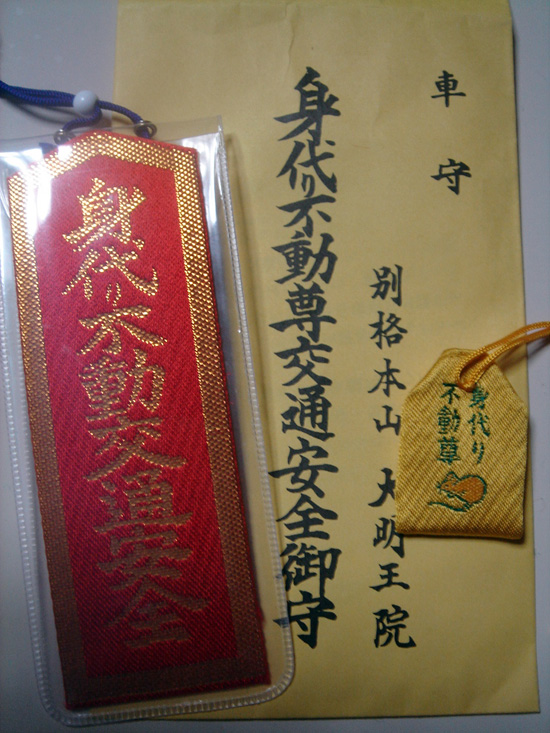 車守
身代り不動尊交通安全御守
別格本山 大明王院
身代り不動交通安全
身代り
不動尊